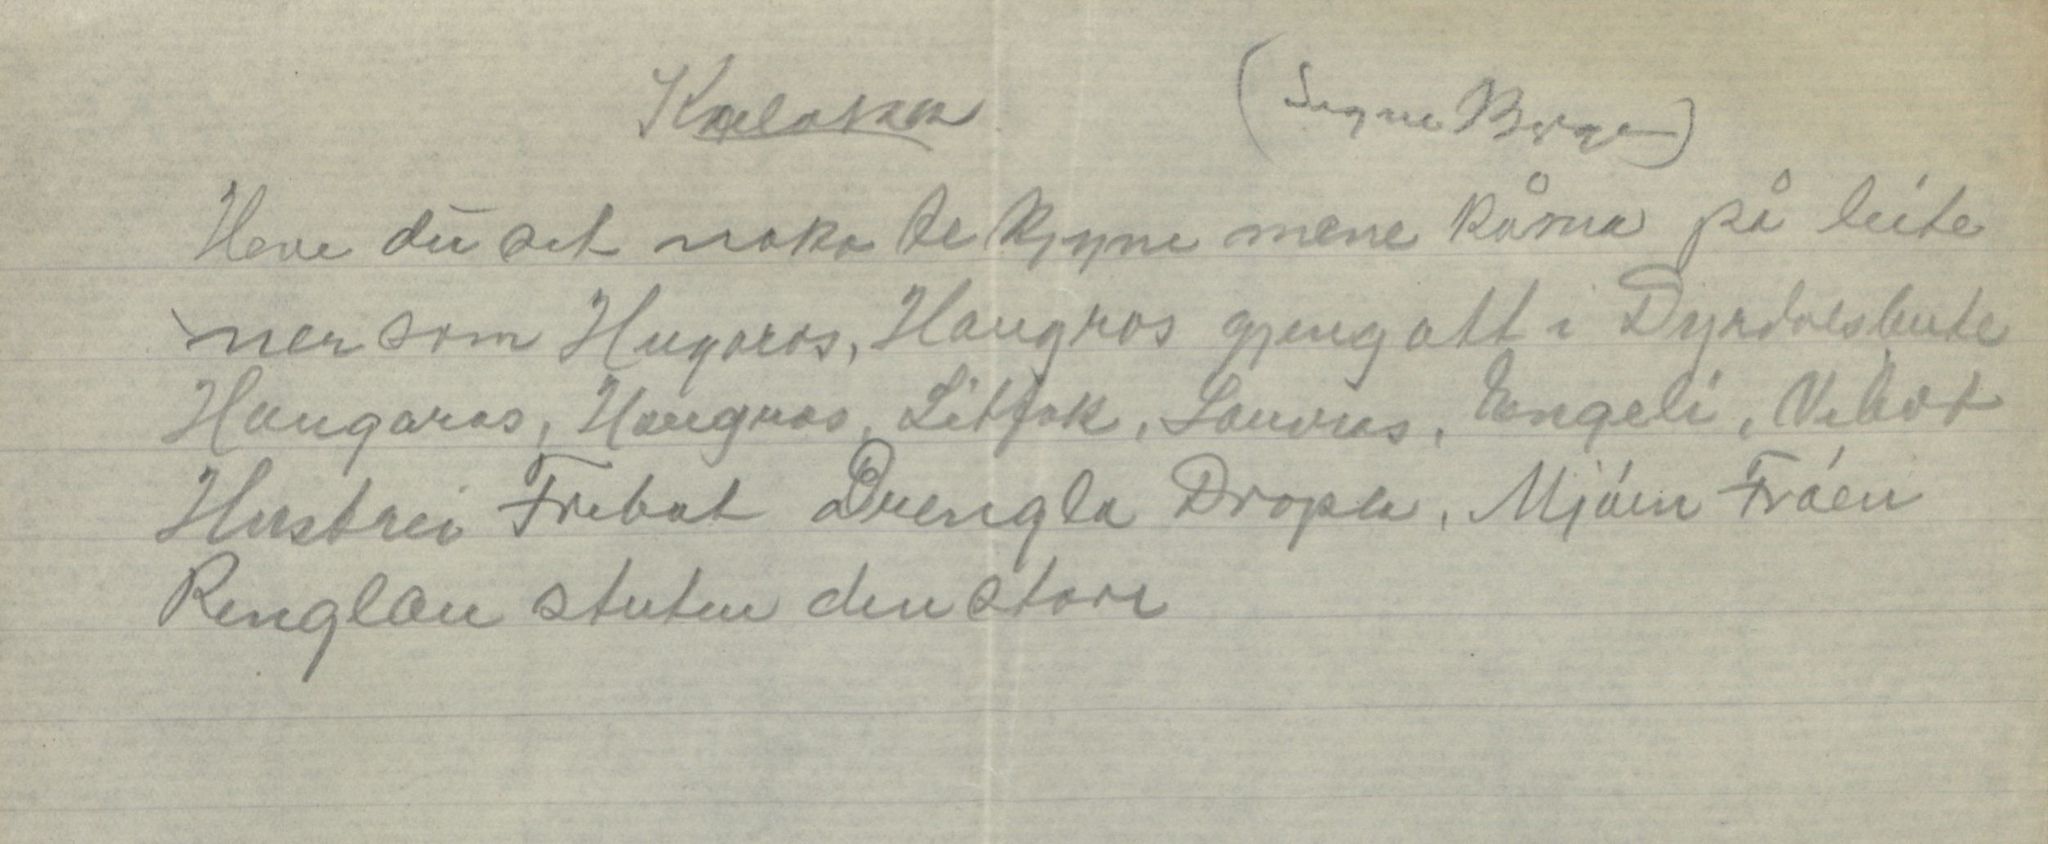 Kulokk (Signe Borgen)
Heve du set noko te kjyne mene kåma på leite
ner som Hugaros, Haugros gjeng att i Dyrdalsleite
Haugaros, Haugros, Litfok, Lauvros, Engeli, Vibot
Hustrei Fribot Drengla Dropla, Mjåen Fråen
Renglau stuten den store